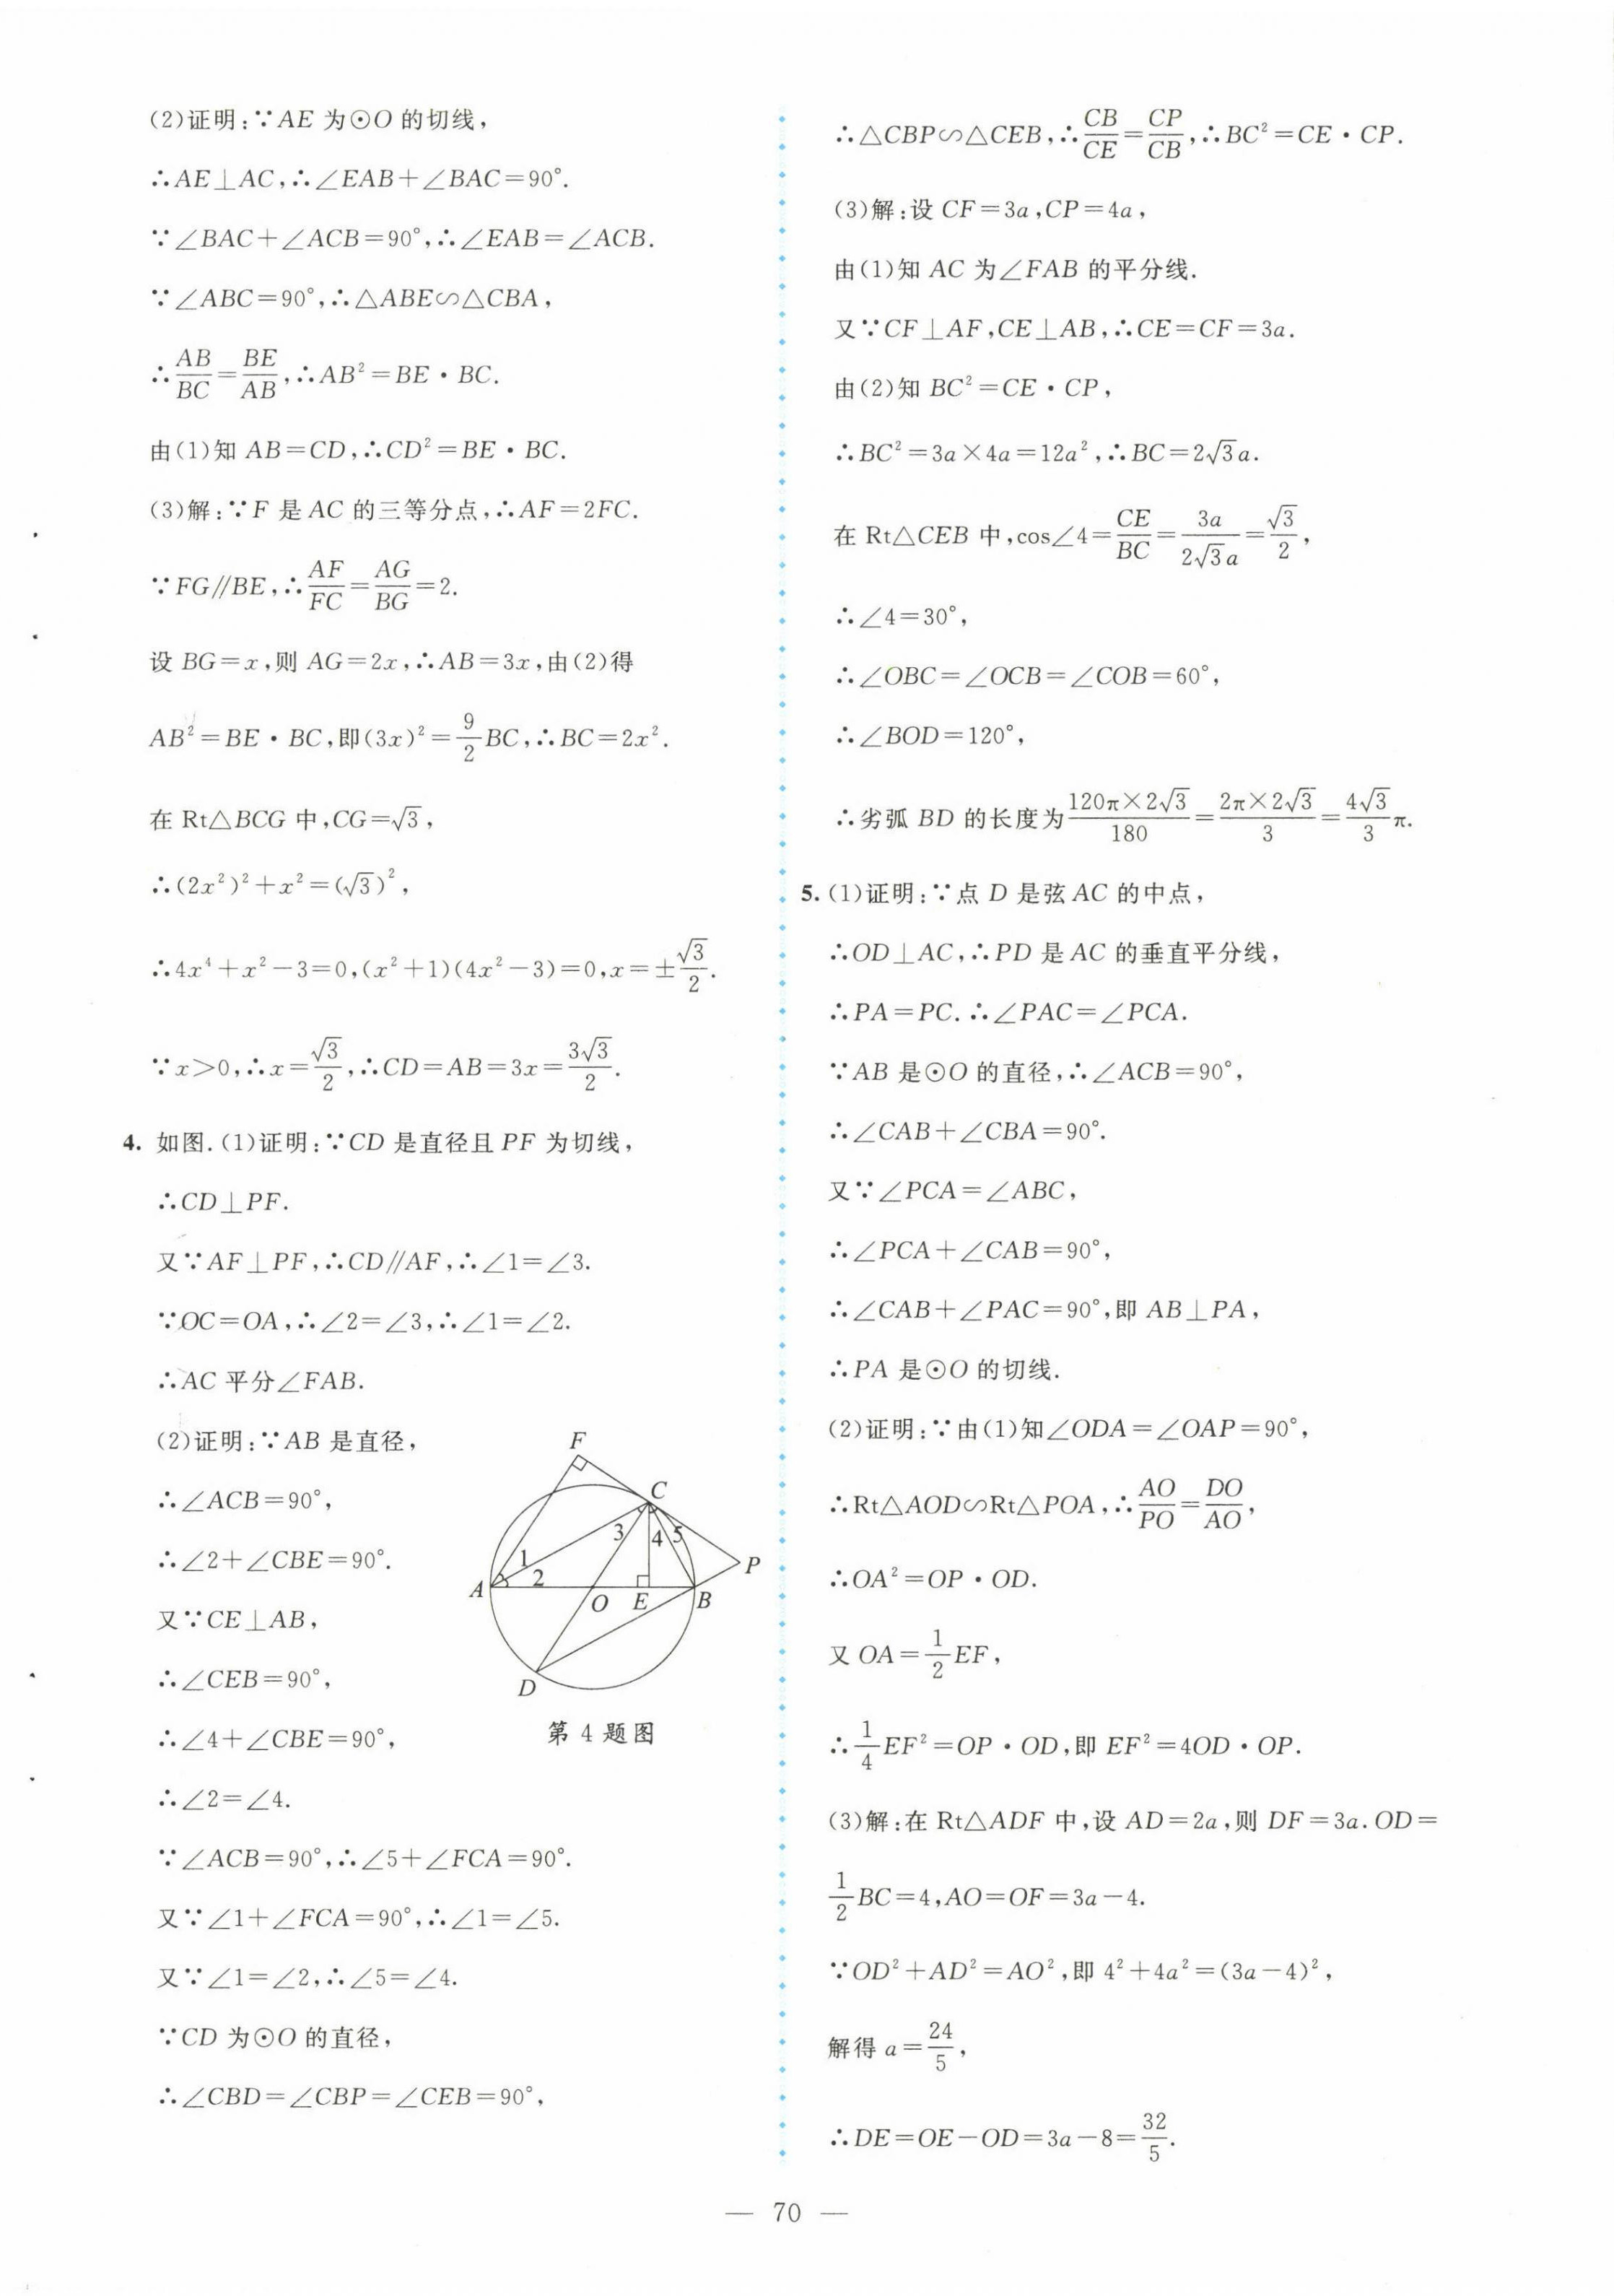 (2)证明:∵AE 为⊙O 的切线,
∴AE⊥AC,∴∠EAB+∠BAC=90°.
∵∠BAC+∠ACB=90°,∴∠EAB=∠ACB.
∵∠ABC=90°,∴△ABE∽△CBA,
∴AB/BC=BE/AB,∴AB²=BE·BC.
由(1)知 AB=CD,∴CD²=BE·BC.
(3)解:∵F 是 AC 的三等分点,∴AF=2FC.
∵FG∥BE,∴AF/FC=AG/BG=2.
设 BG=x,则 AG=2x,∴AB=3x,由(2)得
AB²=BE·BC,即(3x)²=9/2BC,∴BC=2x².
在 Rt△BCG 中,CG=√3,
∴(2x²)²+x²=(√3)²,
∴4x⁴+x²-3=0,(x²+1)(4x²-3)=0,x=±√3/2.
∵x>0,∴x=√3/2,∴CD=AB=3x=3√3/2.
4. 如图.(1)证明:∵CD 是直径且 PF 为切线,
∴CD⊥PF.
又∵AF⊥PF,∴CD∥AF,∴∠1=∠3.
∵OC=OA,∴∠2=∠3,∴∠1=∠2.
∴AC 平分∠FAB.
(2)证明:∵AB 是直径,
∴∠ACB=90°,
∴∠2+∠CBE=90°.
又∵CE⊥AB,
∴∠CEB=90°,
∴∠4+∠CBE=90°,
∴∠2=∠4.
F
C
3
4
5
P
1
2
A
O
E
B
D
第 4 题图
∵∠ACB=90°,∴∠5+∠FCA=90°.
又∵∠1+∠FCA=90°,∴∠1=∠5.
又∵∠1=∠2,∴∠5=∠4.
∵CD 为⊙O 的直径,
∴∠CBD=∠CBP=∠CEB=90°,
∴△CBP∽△CEB,∴CB/CE=CP/CB,∴BC²=CE·CP.
(3)解:设 CF=3a,CP=4a,
由(1)知 AC 为∠FAB 的平分线.
又∵CF⊥AF,CE⊥AB,∴CE=CF=3a.
由(2)知 BC²=CE·CP,
∴BC²=3a×4a=12a²,∴BC=2√3a.
在 Rt△CEB 中,cos∠4=CE/BC=3a/2√3a=√3/2,
∴∠4=30°,
∴∠OBC=∠OCB=∠COB=60°,
∴∠BOD=120°,
∴劣弧 BD 的长度为120π×2√3/180=2π×2√3/3=4√3/3π.
5. (1)证明:∵点 D 是弦 AC 的中点,
∴OD⊥AC,∴PD 是 AC 的垂直平分线,
∴PA=PC.∴∠PAC=∠PCA.
∵AB 是⊙O 的直径,∴∠ACB=90°,
∴∠CAB+∠CBA=90°.
又∵∠PCA=∠ABC,
∴∠PCA+∠CAB=90°,
∴∠CAB+∠PAC=90°,即 AB⊥PA,
∴PA 是⊙O 的切线.
(2)证明:∵由(1)知∠ODA=∠OAP=90°,
∴Rt△AOD∽Rt△POA,∴AO/PO=DO/AO,
∴OA²=OP·OD.
又 OA=1/2EF,
∴1/4EF²=OP·OD,即 EF²=4OD·OP.
(3)解:在 Rt△ADF 中,设 AD=2a,则 DF=3a.OD=
1/2BC=4,AO=OF=3a-4.
∵OD²+AD²=AO²,即 4²+4a²=(3a-4)²,
解得 a=24/5,
∴DE=OE-OD=3a-8=32/5.
— 70 —